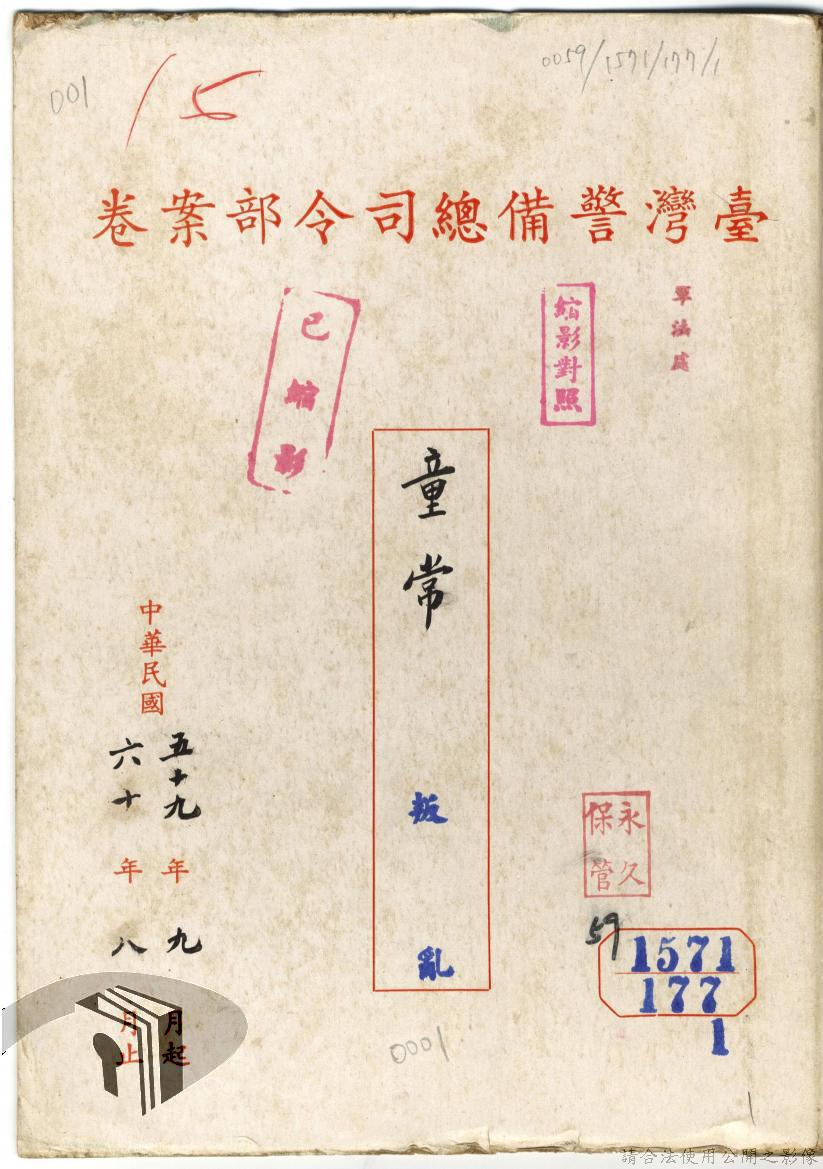 001
15
0059/1571/177/1
臺灣警備總司令部案卷
軍法處
縮影對照
已縮影
童常 叛亂
中華民國
五十九年九月起
六十年八月止
永久
保管
59
1571
177
1
0001
請合法使用公開之影像